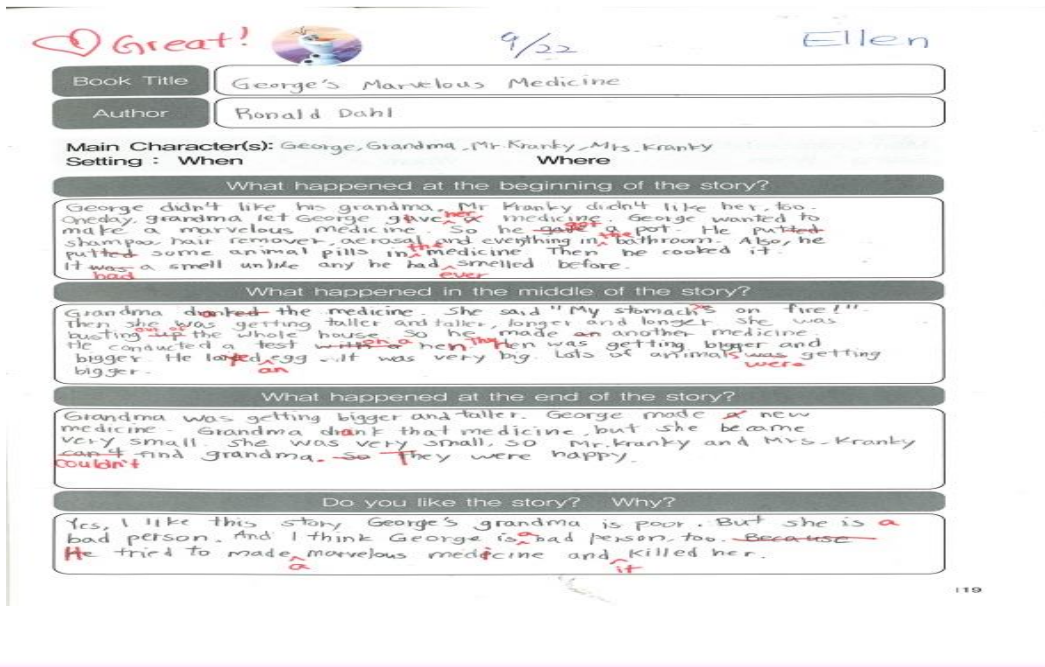 Great! 9/22 Ellen
Book Title George's Marvelous Medicine
Author Ronald Dahl
Main Character(s): George, Grandma, Mr. Kranky, Mrs. Kranky
Setting : When Where
What happened at the beginning of the story?
George didn't like his grandma. Mr Kranky didn't like her, too.
Oneday, grandma let George gave her a medicine. George wanted to
make a marvelous medicine. So he got a pot. He putted
shampoo, hair remover, aerosal and everything in the bathroom. Also, he
putted some animal pills in the medicine Then he cooked it.
It was a smell unlike any he had smelled before.
had ever
What happened in the middle of the story?
Grandma dranked the medicine. She said "My stomach's on fire!".
Then she was getting taller and taller, longer and longer she was
busting up the whole house. So he made an another medicine.
He conducted a test on a hen. The Hen was getting bigger and
bigger He layed egg. It was very big. Lots of animals was getting
bigger. an were
What happened at the end of the story?
Grandma was getting bigger and taller. George made a new
medicine. Grandma drank that medicine, but she became
very small. She was very small, so Mr. Kranky and Mrs. Kranky
can't find grandma. So They were happy.
couldn't
Do you like the story? Why?
Yes, I like this story George's grandma is poor. But she is a
bad person. And I think George is a bad person, too. Because
He tried to made marvelous medicine and killed her.
a it
119